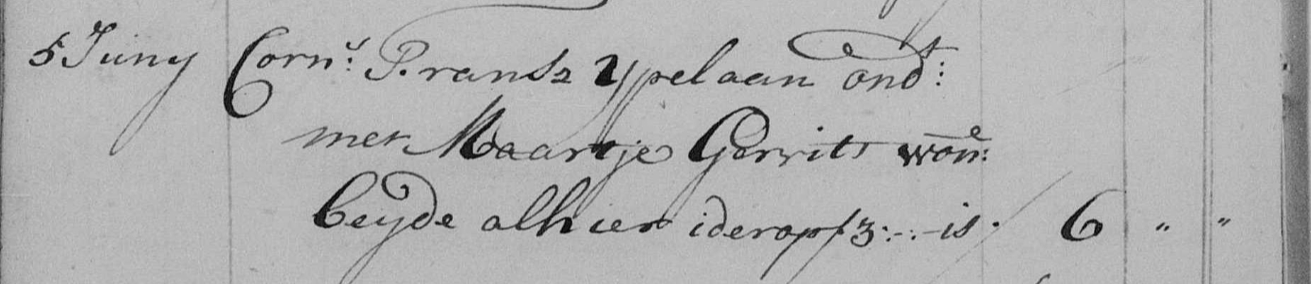 5 Juny Corn:s Fransz Ypelaan ond:t
met Maartje Gerrits won:e
beyde alhier ider op f 3:-:- is . / 6 " "